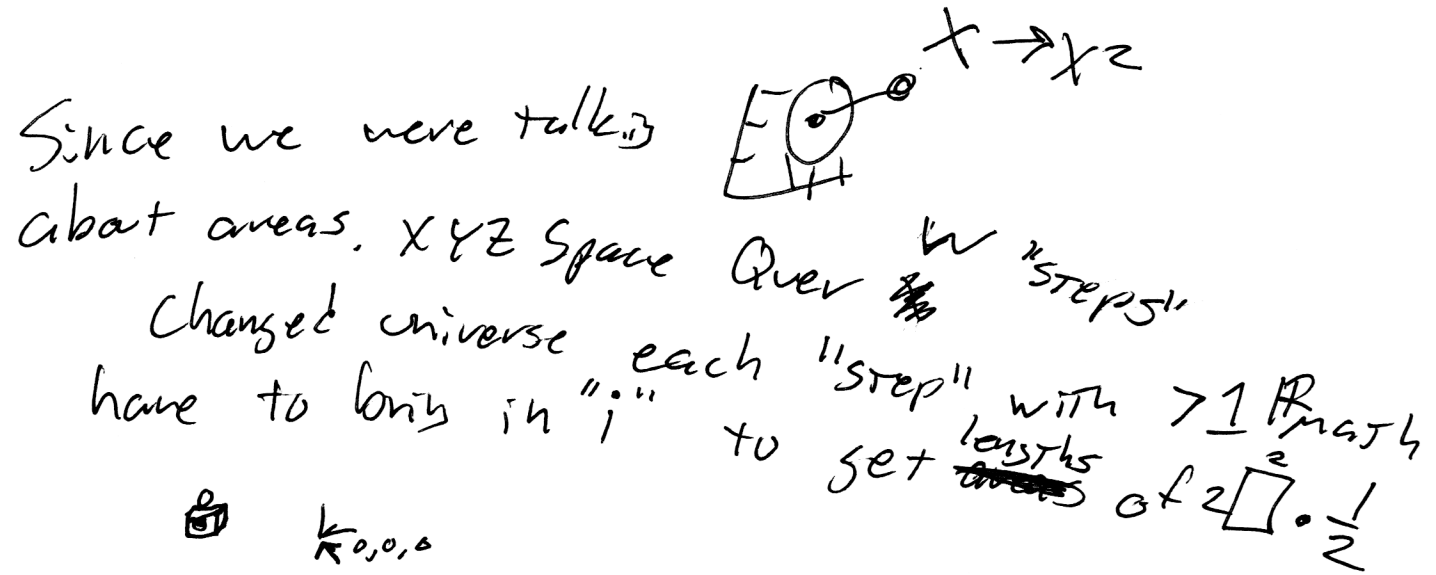 X → X2
Since we were talking
about areas. XYZ Space Over W "steps"
Changed universe each "step", with >1 ℝ math
have to bring in "i" to get lengths of 2□² · 1/2
0,0,0